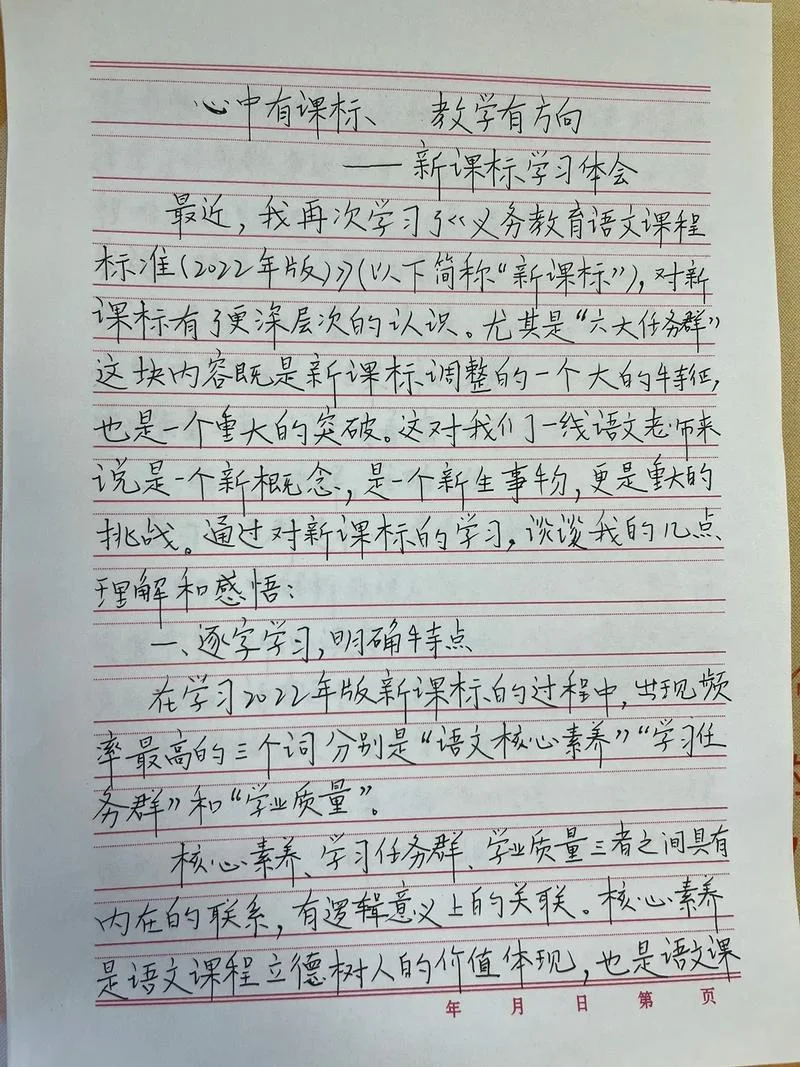 心中有课标、 教学有方向
——新课标学习体会
最近，我再次学习了《义务教育语文课程
标准(2022年版)》(以下简称“新课标”)，对新
课标有了更深层次的认识。尤其是“六大任务群”
这块内容既是新课标调整的一个大的特征，
也是一个重大的突破。这对我们一线语文老师来
说是一个新概念，是一个新生事物，更是重大的
挑战。通过对新课标的学习，谈谈我的几点
理解和感悟：
一、逐字学习，明确特点
在学习2022年版新课标的过程中，出现频
率最高的三个词分别是“语文核心素养”“学习任
务群”和“学业质量”。
核心素养、学习任务群、学业质量三者之间具有
内在的联系，有逻辑意义上的关联。核心素养
是语文课程立德树人的价值体现，也是语文课
年 月 日 第 页